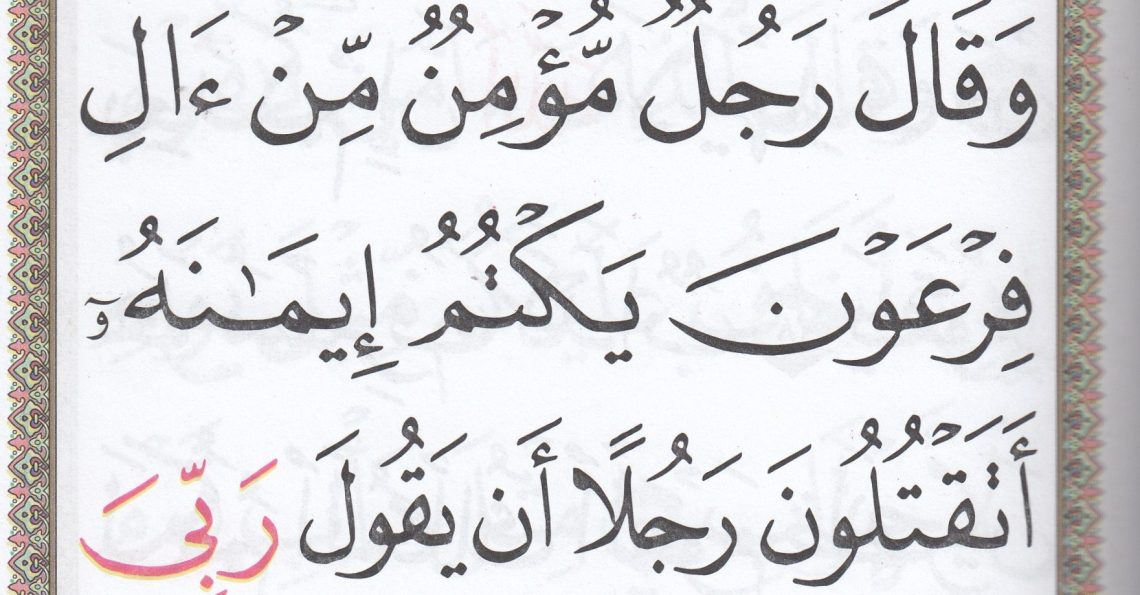 وَقَالَ رَجُلٌ مُّؤْمِنٌ مِّنْ ءَالِ
فِرْعَوْنَ يَكْتُمُ إِيمَٰنَهُۥٓ
أَتَقْتُلُونَ رَجُلًا أَن يَقُولَ رَبِّيَ